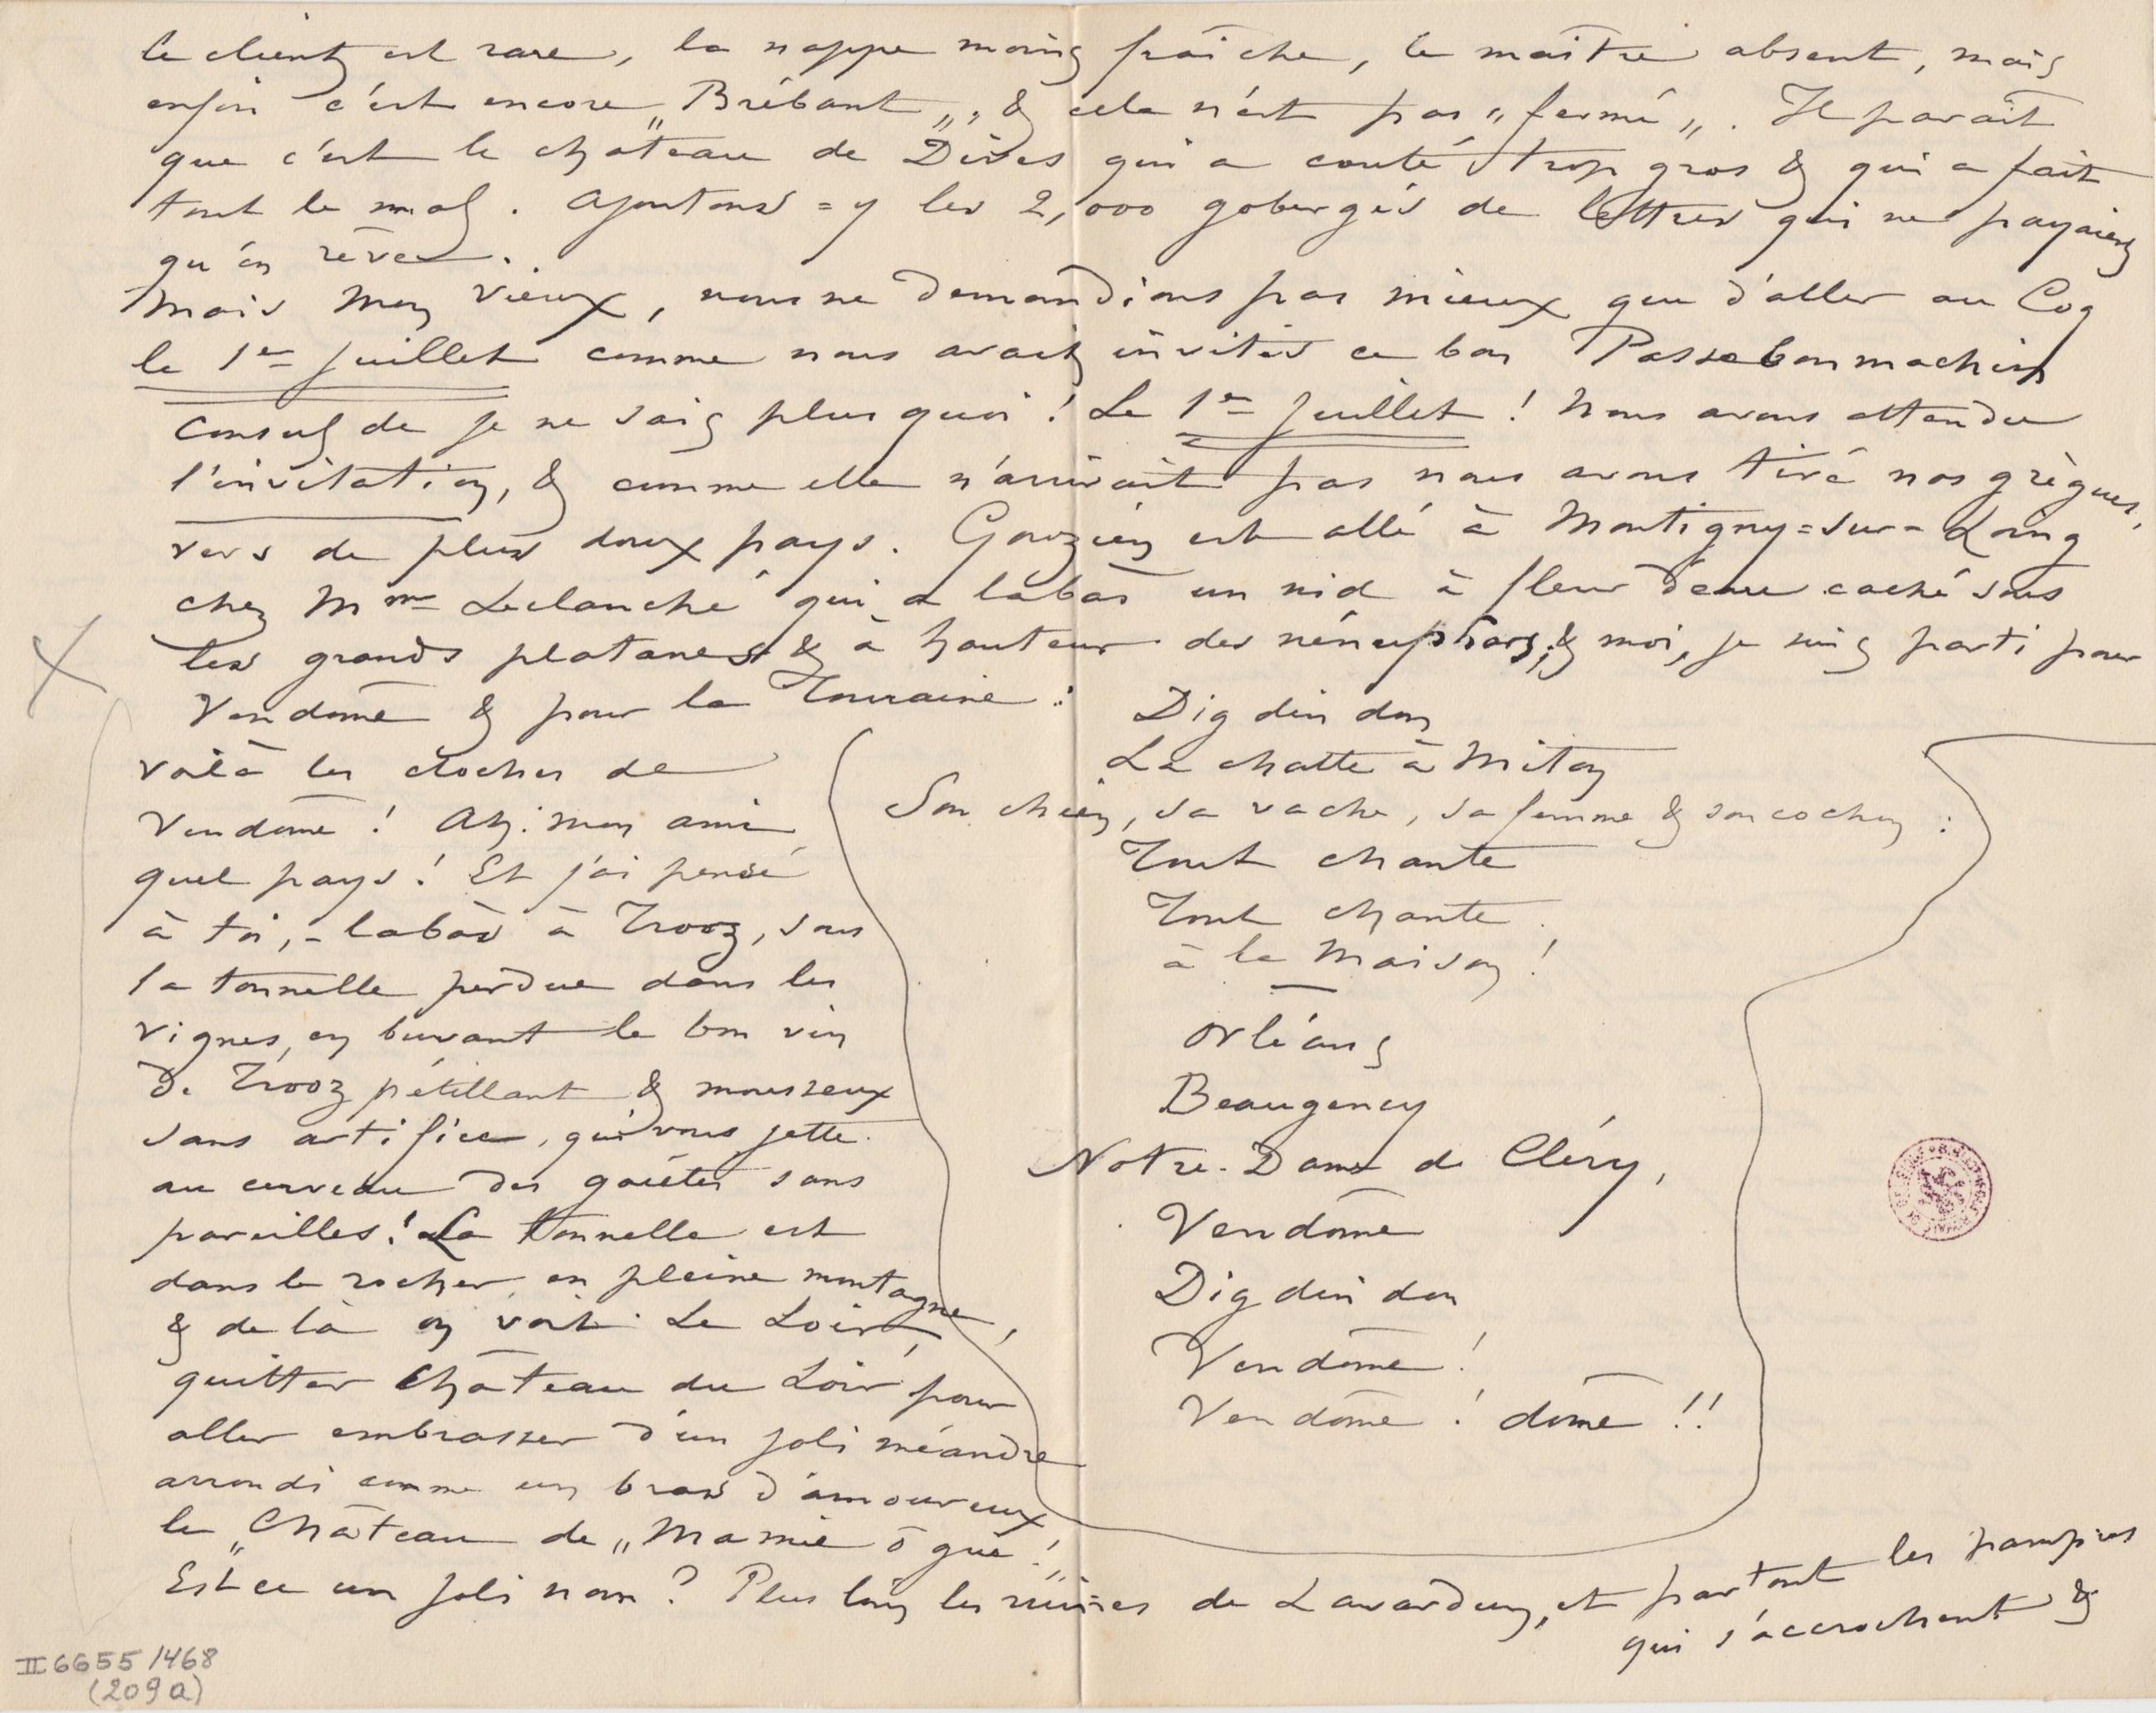 le client est rare, la nappe moins fraîche, le maître absent, mais
enfin c'est encore „Brébant„, & cela n'est pas „fermé„. Il parait
que c'est le château de Dives qui a couté trop gros & qui a fait
tout le mal. Ajoutons=y les 2,000 gobergés de lettres qui ne payaient
qu'en rêve.
Mais mon vieux, nous ne demandions pas mieux que d'aller au Coq
le 1er Juillet comme nous avait invités ce bon Passebonmachin
consul de je ne sais plus quoi! Le 1er Juillet! Nous avons attendu
l'invitation, & comme elle n'arrivait pas nous avons tiré nos grègues,
vers de plus doux pays. Gouzien est allé à Montigny=sur-Loing
chez Mme Leclanché qui a labàs un nid à fleur d'eau caché sous
les grands platanes & à hauteur des nénuphars; & moi, je suis parti pour
Vendôme & pour la Touraine:
voilà les clochers de
Vendôme! Ah! mon ami
quel pays! Et j'ai pensé
à toi, - labàs à Trooz, sous
la tonnelle perdue dans les
vignes, en buvant le bon vin
de Trooz pétillant & mousseux
sans artifice, qui vous jette
au cerveau des gaietés sans
pareilles! La tonnelle est
dans le rocher en pleine montagne,
& de là on voit le Loir,
quitter Château du Loir pour
aller embrasser d'un joli méandre
arrondi comme un bras d'amoureux
le „Château de „Mamie ô gué!„
Est ce un joli nom? Plus loin les ruines de Lavardin, et partout les pampres
qui s'accrochent &
Dig din don
La chatte à Miton
Son chien, sa vache, sa femme & son cochon:
Tout chante
Tout chante
à la Maison!
Orléans
Beaugency
Notre-Dame de Cléry,
Vendôme
Dig din don
Vendôme!
Vendôme! dôme!!
II 6655/468
(209a)